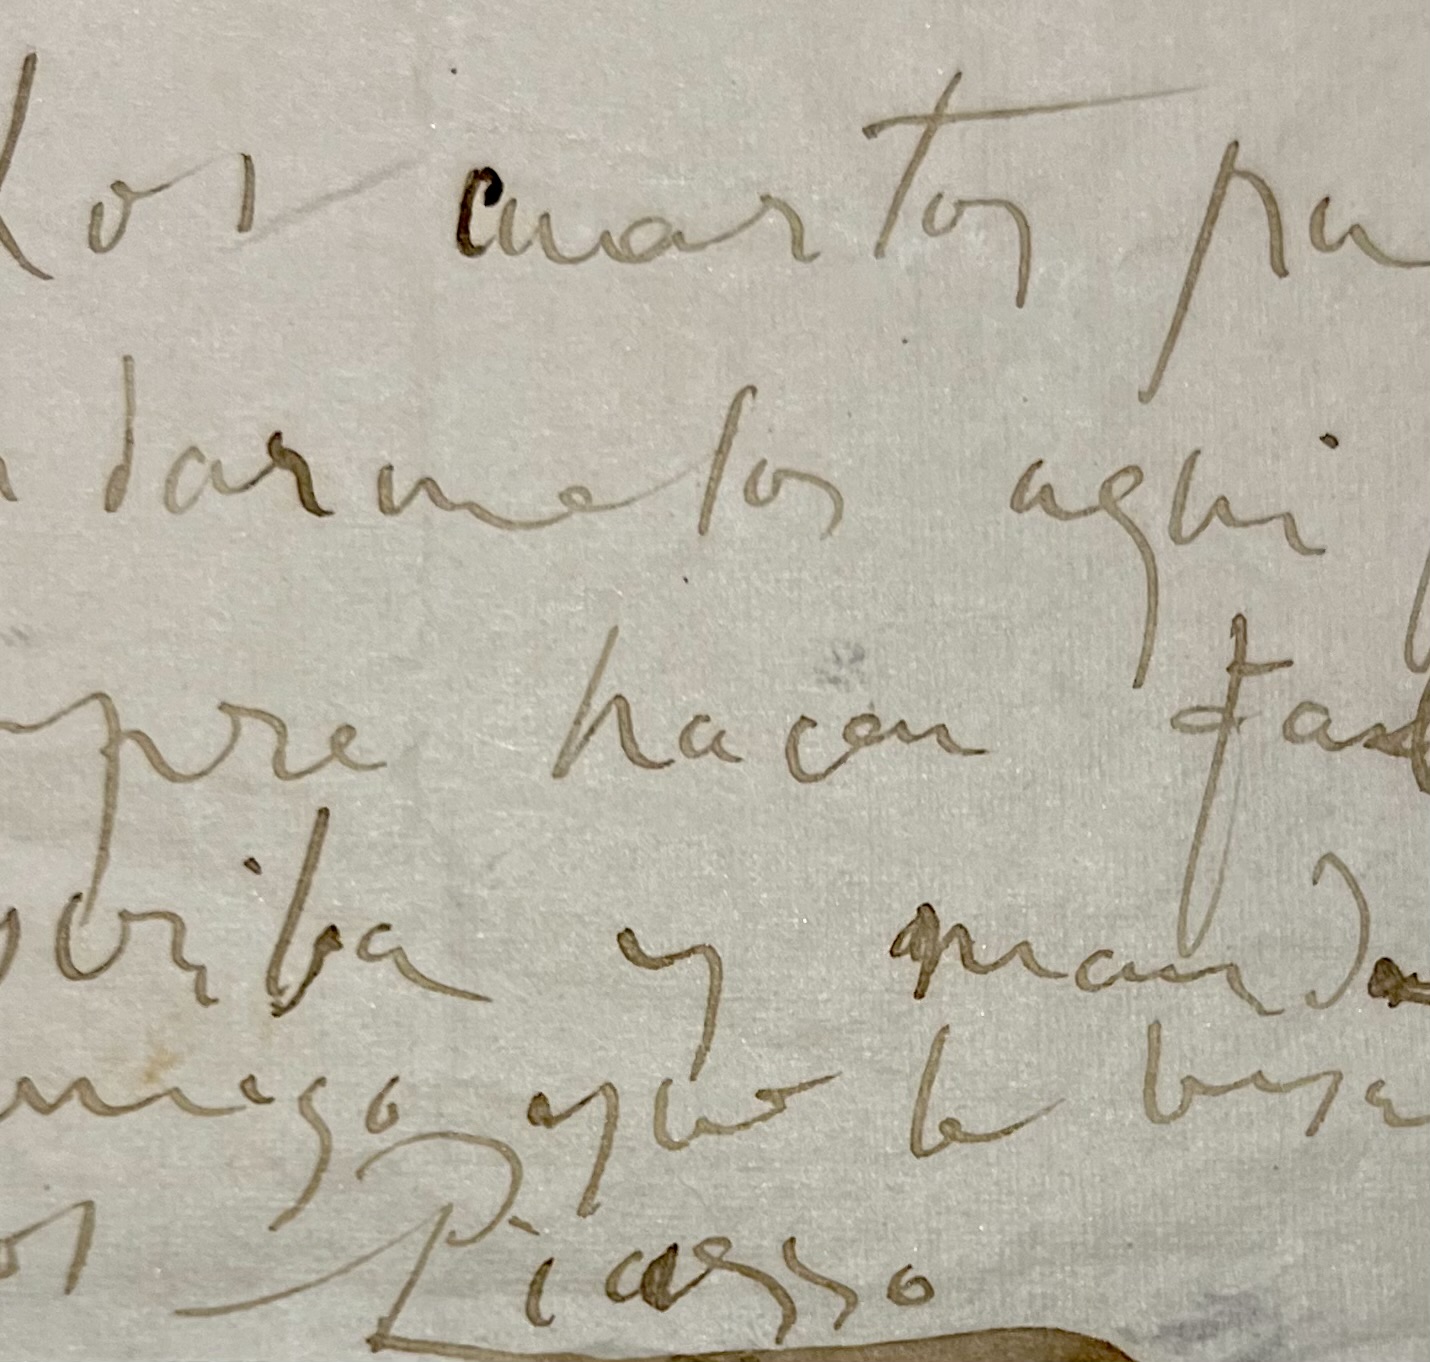 Los cuartos pu
darmelos aqui
mpre hacen fal
scriba y manda
amigo que le besa
os Picasso